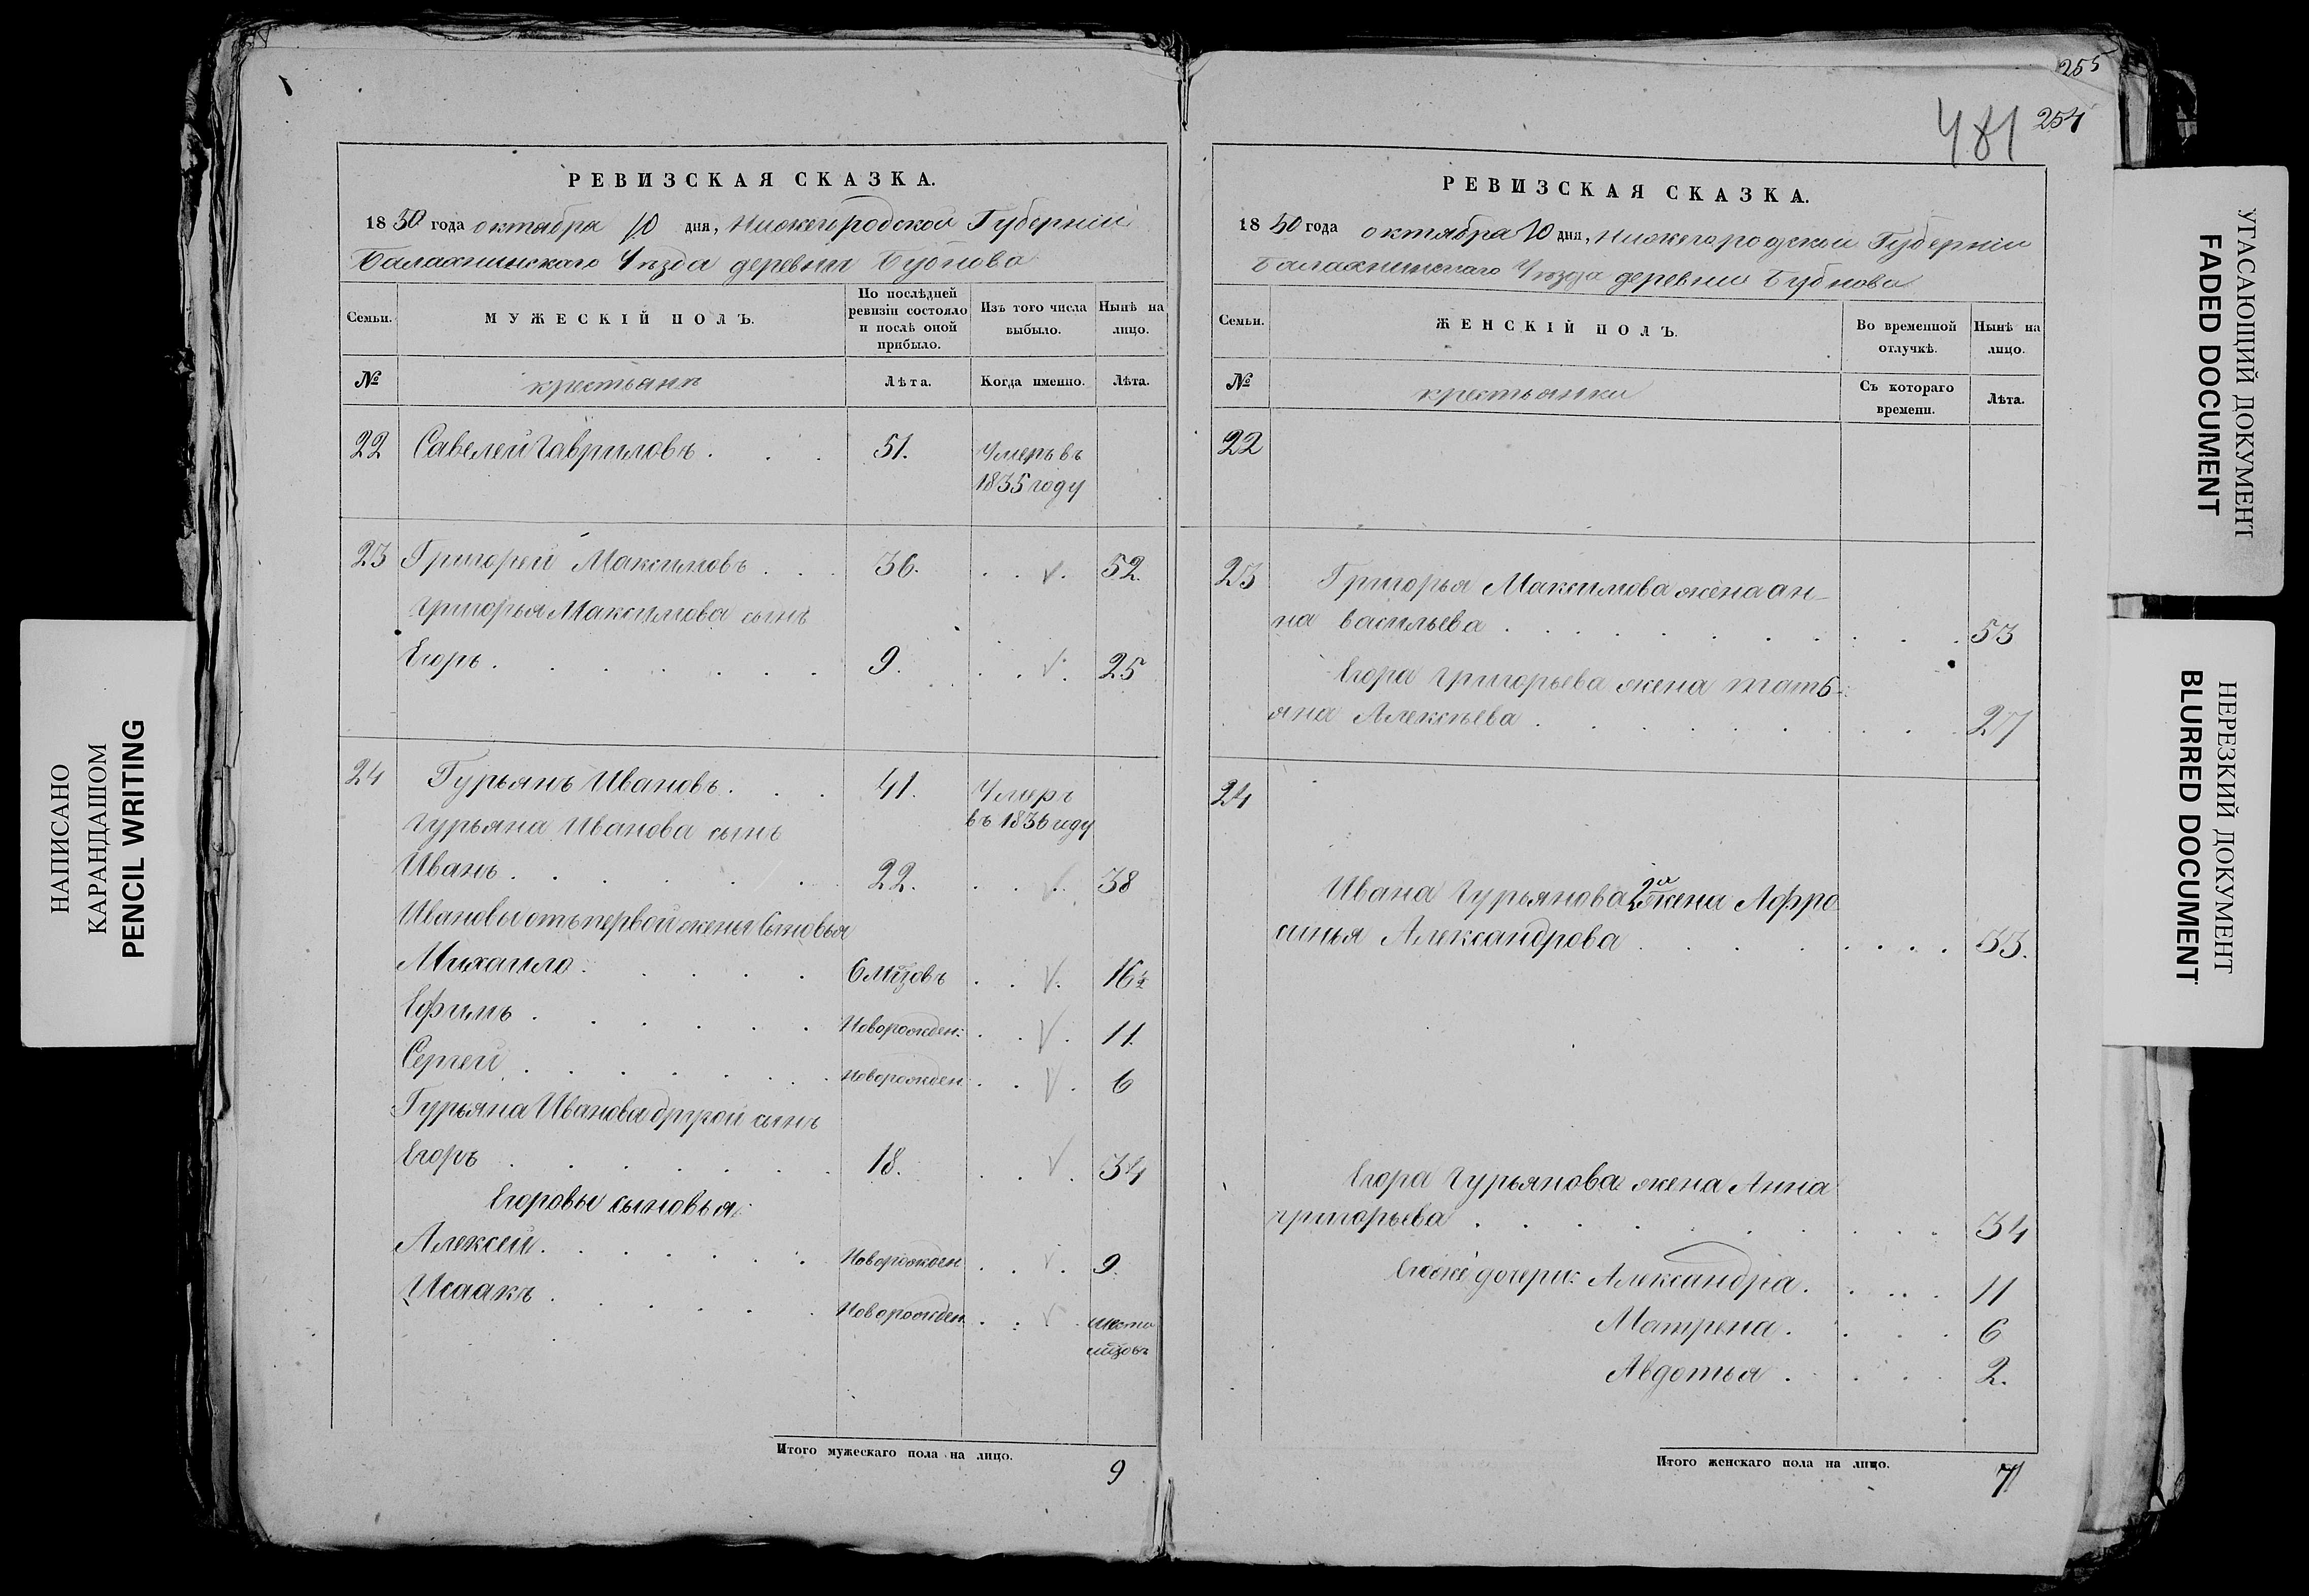 255
481 254
РЕВИЗСКАЯ СКАЗКА.
1850 года октября 10 дня, Нижегородской Губернии
Балахнинскаго Уѣзда деревни Бубнова
Семьи.
МУЖЕСКІЙ ПОЛЪ.
По послѣдней ревизіи состояло и послѣ оной прибыло.
Изъ того числа выбыло.
Нынѣ на лицо.
№
крестьянъ
Лѣта.
Когда именно.
Лѣта.
22 Савелей Гавриловъ . . . 51. Умеръ въ
1835 году
23 Григорей Максимовъ . . . 36. . . v. 52.
Григорья Максимова сынъ
Егоръ . . . . . . . 9. . . v. 25
24 Гурьянъ Ивановъ . . . 41. Умеръ
въ 1836 году
Гурьяна Иванова сынъ
Иванъ . . . . . . . 22. . . v. 38
Ивановы отъ первой жены Сыновья
Михайло . . . . . 6 мцовъ . . v. 16½
Ефимъ . . . . . . Новорожден: . . v. 11.
Сергей . . . . . . . Новорожден. . . v. 6
Гурьяна Иванова другой сынъ
Егоръ . . . . . . . 18. . . v. 34
Егоровы сыновья:
Алексей . . . . . . Новорожден . . v. 9.
Исаакъ . . . . . . Новорожден. . : v. шести
мцовъ
Итого мужескаго пола на лицо.
9
РЕВИЗСКАЯ СКАЗКА.
1850 года октября 10 дня, Нижегородской Губернии
Балахнинскаго Уѣзда деревни Бубнова
Семьи.
ЖЕНСКІЙ ПОЛЪ.
Во временной отлучкѣ.
Нынѣ на лицо.
№
крестьянки
Съ котораго времени.
Лѣта.
22
23 Григорья Максимова жена ан-
на васильева . . . . . . . . . . 53
Егора Григорьева жена тать-
яна Алексѣева . . . . . . . . . 27
24
Ивана Гурьянова 2я жена Афро
синья Александрова . . . . . . . . 33.
Егора Гурьянова жена Анна
григорьева . . . . . . . . . 34
Еюже дочери: Александра . . . . . 11
Матрена . . . . 6
Авдотья . . . . 2.
Итого женскаго пола на лицо.
7
НАПИСАНО
КАРАНДАШОМ
PENCIL WRITING
УГАСАЮЩИЙ ДОКУМЕНТ
FADED DOCUMENT
НЕРЕЗКИЙ ДОКУМЕНТ
BLURRED DOCUMENT